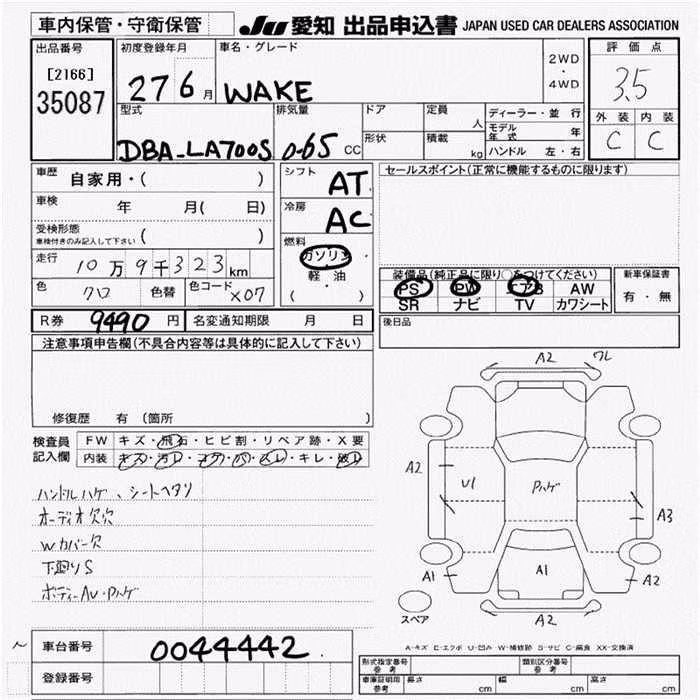 車内保管・守衛保管
JU 愛知 出品申込書 JAPAN USED CAR DEALERS ASSOCIATION
出品番号
[2166]
35087
初度登録年月
27 6 月
車名・グレード
WAKE
2WD
・
4WD
評価点
3.5
外装 内装
C C
型式
DBA-LA700S
排気量
0-65 CC
ドア
形状
定員
人
積載
kg
ディーラー・並行
モデル年式 年
ハンドル 左・右
車歴
自家用・( )
車検
年 月( 日)
受検形態
車検付きのみ記入して下さい ( )
走行
10万9千323km
色
クロ
色替
色コード
X07
シフト
AT
冷房
AC
燃料
ガソリン
軽油
( ・ )
セールスポイント(正常に機能するものに限ります)
装備品(純正品に限り○をつけてください)
PS PW エアB AW
SR ナビ TV カワシート
新車保証書
有・無
後日品
R券 9490 円
名変通知期限 月 日
注意事項申告欄(不具合内容等は具体的に記入して下さい)
修復歴 有 (箇所 )
検査員
記入欄
FW キズ・飛石・ヒビ割・リペア跡・X要
内装 キズ・汚レ・コゲ・穴・スレ・キレ・破レ
ハンドルハゲ、シートヘタリ
オーディオ欠欠
Wカバー欠
下廻りS
ボディーAU・Pハゲ
A2 ワレ
A2
U1
Pハゲ
A3
A1
A1
A2
A2
スペア
A-キズ E-エクボ U-凹み W-補修跡 S-サビ C-腐食 XX-交換済
車台番号
0044442
登録番号
形式指定番号
参考
類別区分番号
参考
車庫証明用
参考
長さ cm
幅 cm
高さ cm